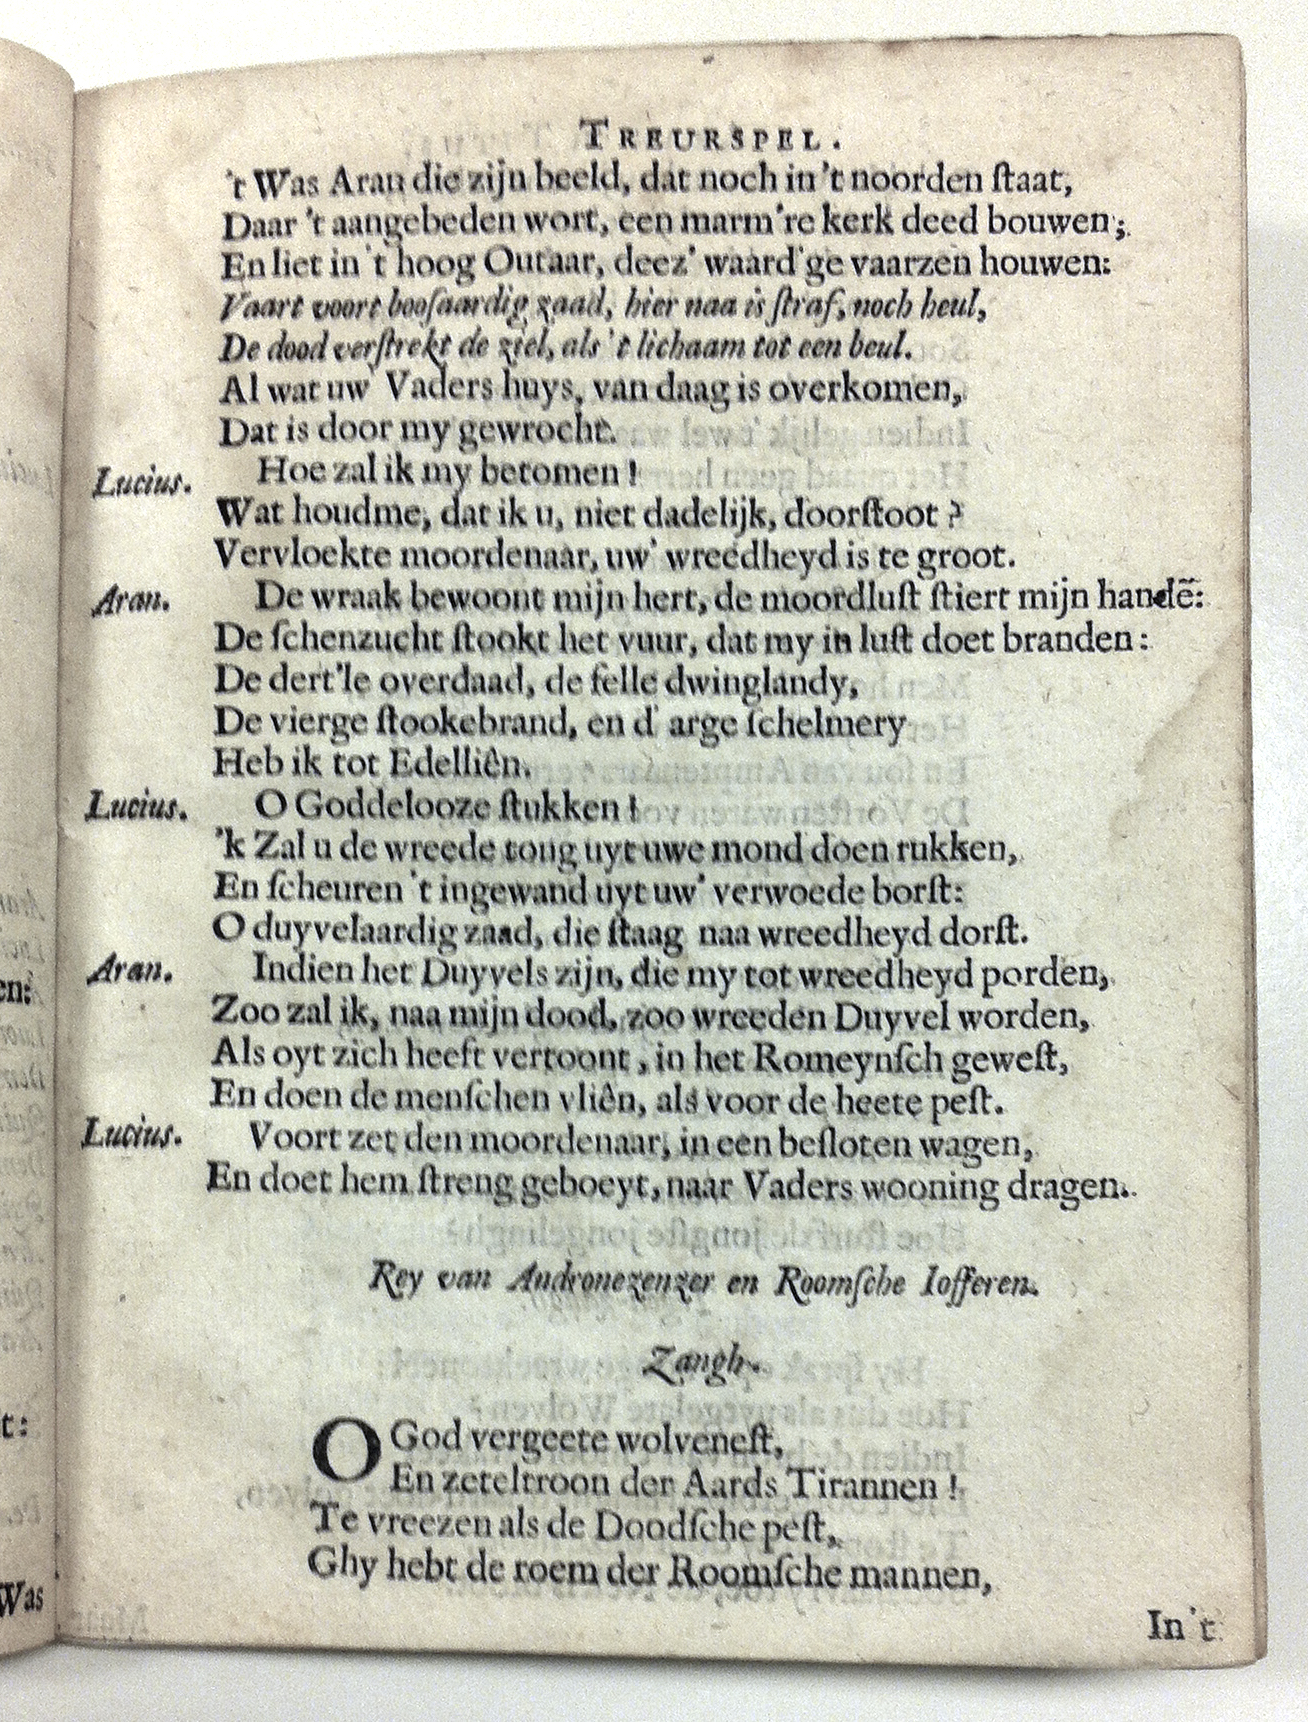 TREURSPEL.
't Was Aran die zijn beeld, dat noch in 't noorden ſtaat,
Daar 't aangebeden wort, een marm're kerk deed bouwen;
En liet in 't hoog Outaar, deez' waard'ge vaarzen houwen:
Vaart voort booſaardig zaad, hier naa is ſtraf, noch heul,
De dood verſtrekt de ziel, als 't lichaam tot een beul.
Al wat uw' Vaders huys, van daag is overkomen,
Dat is door my gewrocht.
Lucius. Hoe zal ik my betomen!
Wat houdme, dat ik u, niet dadelijk, doorſtoot?
Vervloekte moordenaar, uw' wreedheyd is te groot.
Aran. De wraak bewoont mijn hert, de moordluſt ſtiert mijn handẽ:
De ſchenzucht ſtookt het vuur, dat my in luſt doet branden:
De dert'le overdaad, de felle dwinglandy,
De vierge ſtookebrand, en d' arge ſchelmery
Heb ik tot Edelliên.
Lucius. O Goddelooze ſtukken!
'k Zal u de wreede tong uyt uwe mond doen rukken,
En ſcheuren 't ingewand uyt uw' verwoede borſt:
O duyvelaardig zaad, die ſtaag naa wreedheyd dorſt.
Aran. Indien het Duyvels zijn, die my tot wreedheyd porden,
Zoo zal ik, naa mijn dood, zoo wreeden Duyvel worden,
Als oyt zich heeft vertoont, in het Romeynſch geweſt,
En doen de menſchen vliên, als voor de heete peſt.
Lucius. Voort zet den moordenaar, in een beſloten wagen,
En doet hem ſtreng geboeyt, naar Vaders wooning dragen.
Rey van Andronezenzer en Roomſche Iofferen.
Zangh.
O God vergeete wolveneſt,
En zeteltroon der Aards Tirannen!
Te vreezen als de Doodſche peſt,
Ghy hebt de roem der Roomſche mannen,
In 't
en:
t:
Was